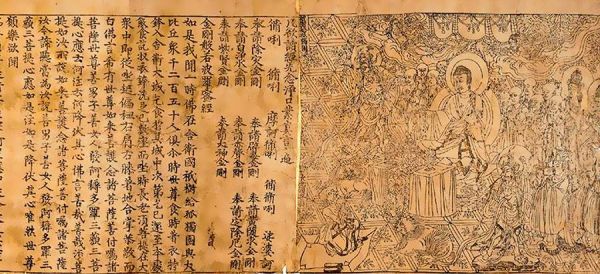 凡欲讀經先念淨口業真言一遍
脩唎 脩唎 摩訶脩唎 脩脩唎 娑婆訶
奉請除災金剛 奉請辟毒金剛 奉請黃隨求金剛
奉請白淨水金剛 奉請赤聲金剛 奉請定除厄金剛
奉請紫賢金剛 奉請大神金剛
金剛般若波羅蜜經
如是我聞一時佛在舍衛國祇樹給孤獨園與大
比丘眾千二百五十人俱尒時世尊食時著衣持
鉢入舍衛大城乞食於其城中次第乞已還至本處
飯食訖收衣鉢洗足已敷座而坐時長老須菩提在大
眾中即從座起偏袒右肩右膝著地合掌恭敬而
白佛言希有世尊如來善護念諸菩薩善付囑諸
菩薩世尊善男子善女人發阿耨多羅三藐三菩
提心應云何住云何降伏其心佛言善哉善哉須菩
提如汝所說如來善護念諸菩薩善付囑諸菩薩
汝今諦聽當為汝說善男子善女人發阿耨多羅三
藐三菩提心應如是住如是降伏其心唯然世尊
願樂欲聞